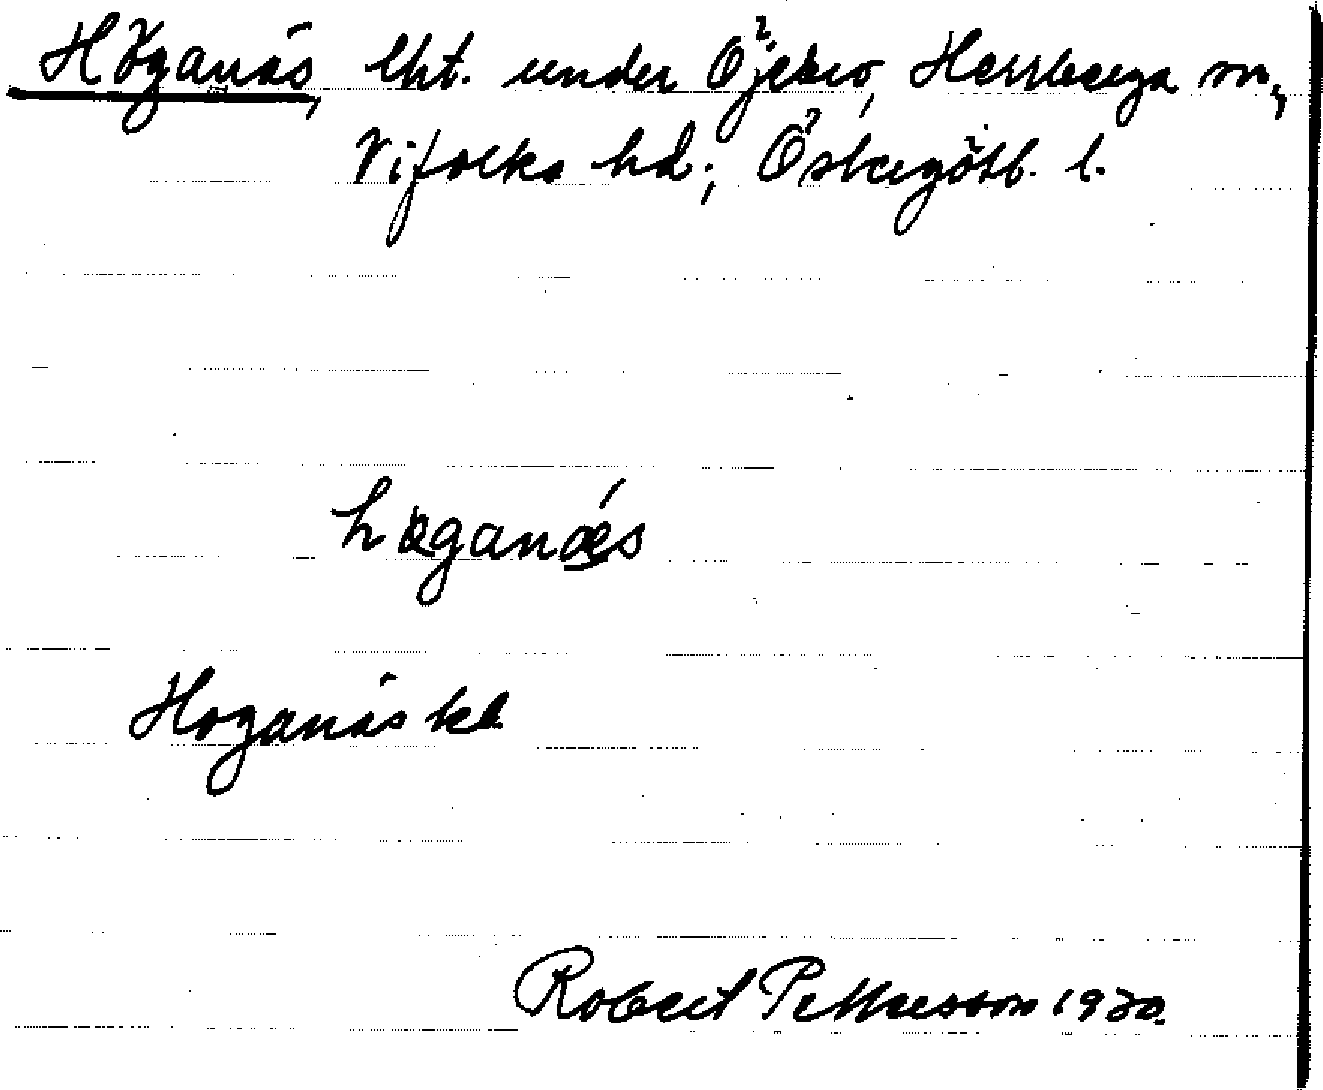 Höganäs, lht. under Öjebro, Herrberga sn,
Vifolka hd; Östergötl. l.
høganæs
Höganäs kb
Robert Pettersson 1930.